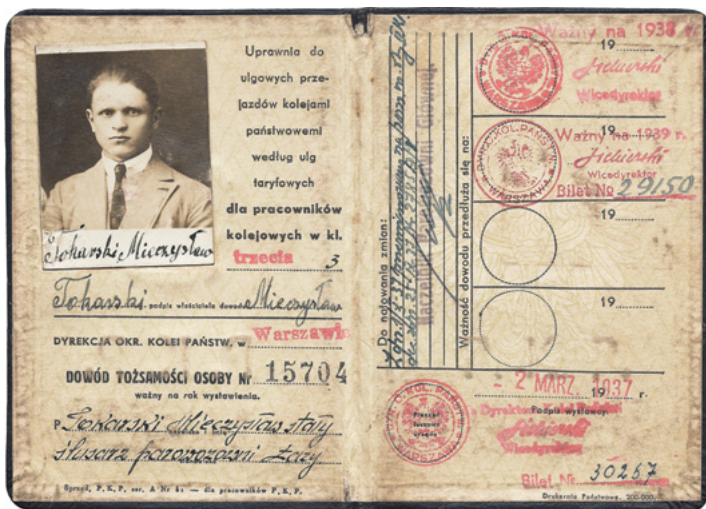 Uprawnia do
ulgowych prze-
jazdów kolejami
państwowemi
według ulg
taryfowych
dla pracowników
kolejowych w kl.
trzecia 3
Tokarski Mieczysław
Tokarski podpis właściciela dowodu Mieczysław
DYREKCJA OKR. KOLEI PAŃSTW. w Warszawie
DOWÓD TOŻSAMOŚCI OSOBY Nr 15704
ważny na rok wystawienia.
P. Tokarski Mieczysław stały
ślusarz parowozowni Łazy
Sprzed. P. K. P. ser. A Nr 61 — dla pracowników P. K. P.
Do notowania zmian:
Naczelnik Parowozowni Głównej
Ważność dowodu przedłuża się na:
DYR. KOL. PAŃSTW. WARSZAWA
Ważny na 1938 r.
19
Wicedyrektor
DYR. KOL. PAŃSTW. WARSZAWA
19
Ważny na 1939 r.
Wicedyrektor
Bilet No 29150
19
19
- 2 MARZ. 1937
19 r.
DYR. KOL. PAŃSTW. WARSZAWA
Pieczęć
urzędu
Podpis wystawcy
Wicedyrektor
Bilet Nr. 30257
Drukarnia Państwowa. 200.000.